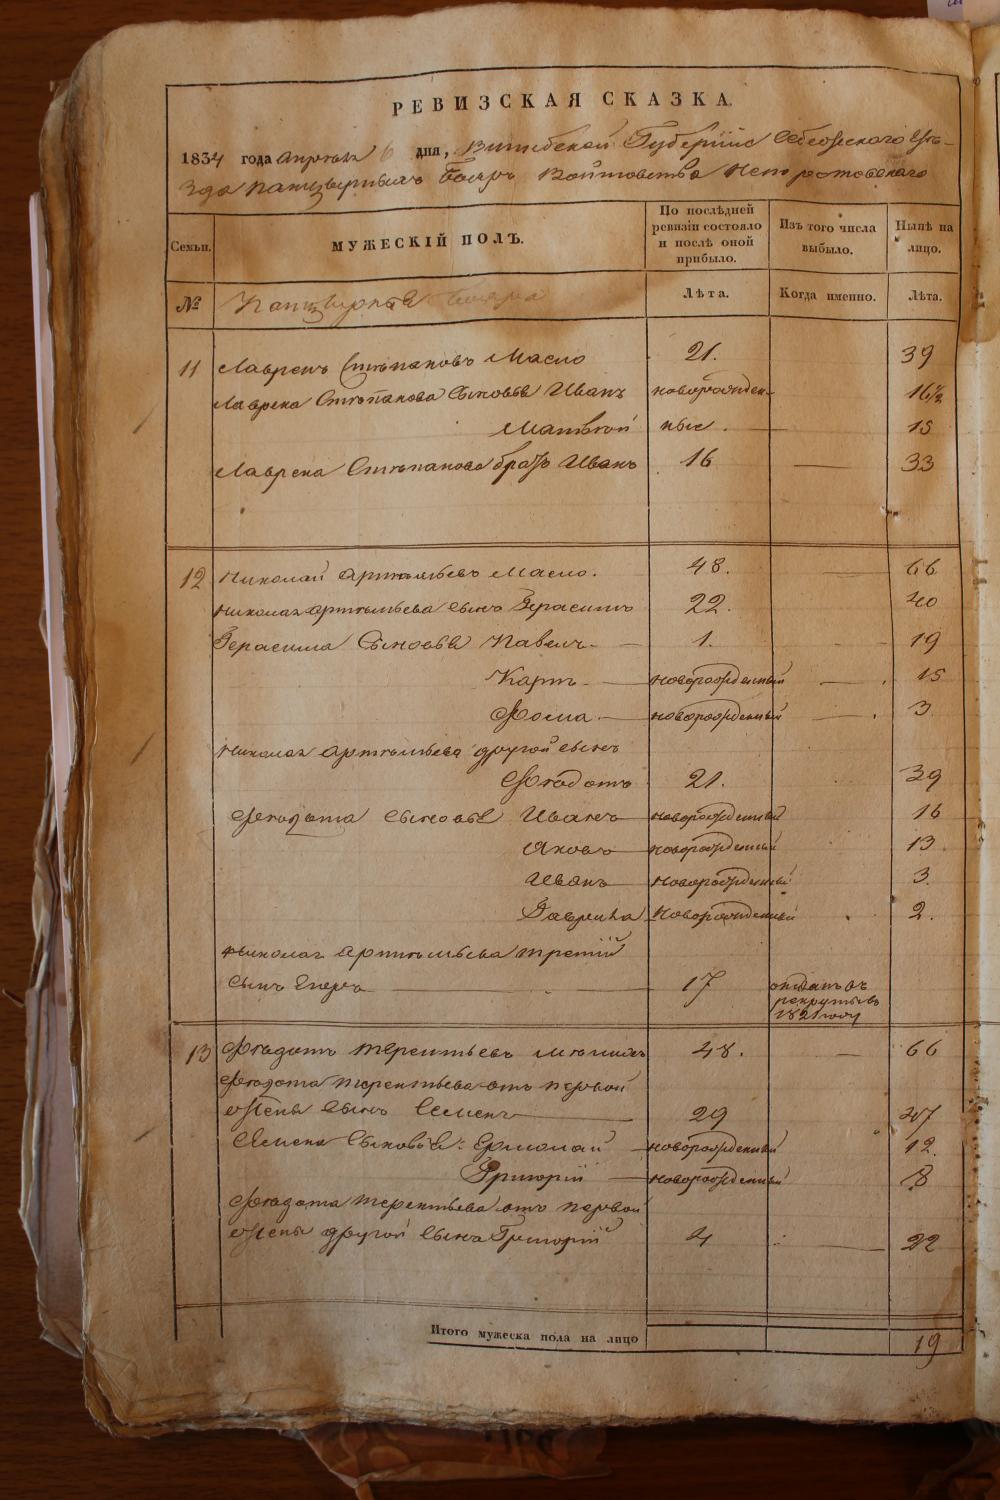 РЕВИЗСКАЯ СКАЗКА.
1834 года апреля 6 дня, Витебской Губернии Себежского Уѣ-
зда панцырныхъ бояръ Войтовства Непоротовскаго
Семьи.
МУЖЕСКІЙ ПОЛЪ.
По послѣдней ревизіи состояло и послѣ оной прибыло.
Изъ того числа выбыло.
Нынѣ на лицо.
№ Панцырные бояра
Лѣта.
Когда именно.
Лѣта.
11 Лавренъ Степановъ Масло 21. 39
Лаврена Степанова Сыновья Иванъ новорожден- 16½
Матвей ные. 15
Лаврена Степанова братъ Иванъ 16 33
12 Николай Артемьевъ Масло. 48. 66
Николая Артемьева сынъ Герасимъ 22. 40
Герасима Сыновья Павелъ 1. 19
Карпъ новорожденный 15
Фома новорожденный 3
Николая Артемьева другой сынъ
Фѣодотъ 21. 39
Фѣодота сыновья Иванъ новорожденный 16
Яковъ новорожденный 13
Иванъ новорожденный 3.
Гаврила Новорожденный 2.
Николая Артемьева третій
сынъ Егоръ 17 отданъ въ
рекруты въ
1821 году
13 Фѣодотъ Терентьевъ 48. 66
Фѣодота Терентьева отъ первой
жены сынъ Семенъ 29 47
Семена Сыновья: Ермолай новорожденный 12.
Григорій новорожденный 8
Фѣодота Терентьева отъ первой
жены другой сынъ Григорій 4 22
Итого мужеска пола на лицо 19